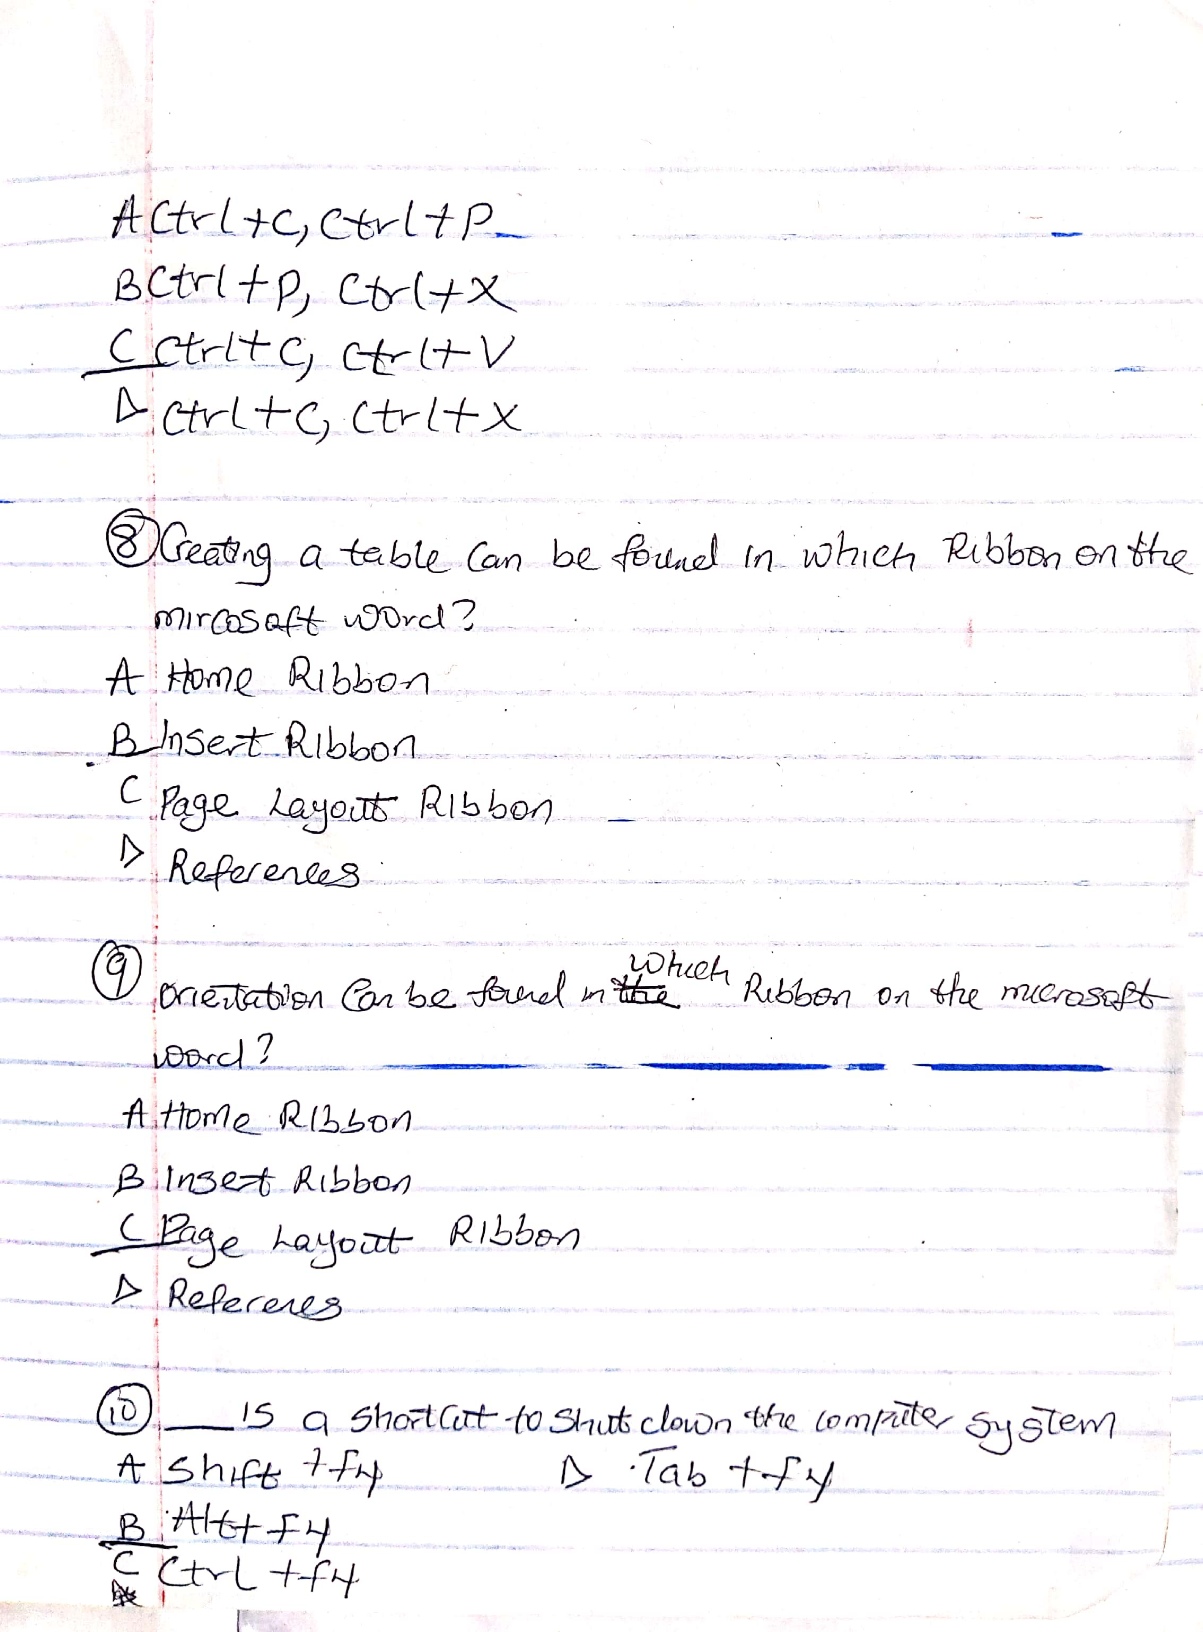 A Ctrl+C, Ctrl+P
B Ctrl+P, Ctrl+X
C Ctrl+C, Ctrl+V
D Ctrl+C, Ctrl+X
8 Creating a table Can be found in which Ribbon on the
mircosoft word?
A Home Ribbon
B Insert Ribbon
C Page Layout Ribbon
D References
9 Orientation Can be found in the which Ribbon on the microsoft
word?
A Home Ribbon
B Insert Ribbon
C Page Layout Ribbon
D Referenes
10 ___ is a shortcut to shut down the computer system
A Shift +f4 D Tab +f4
B Alt+f4
C Ctrl +f4